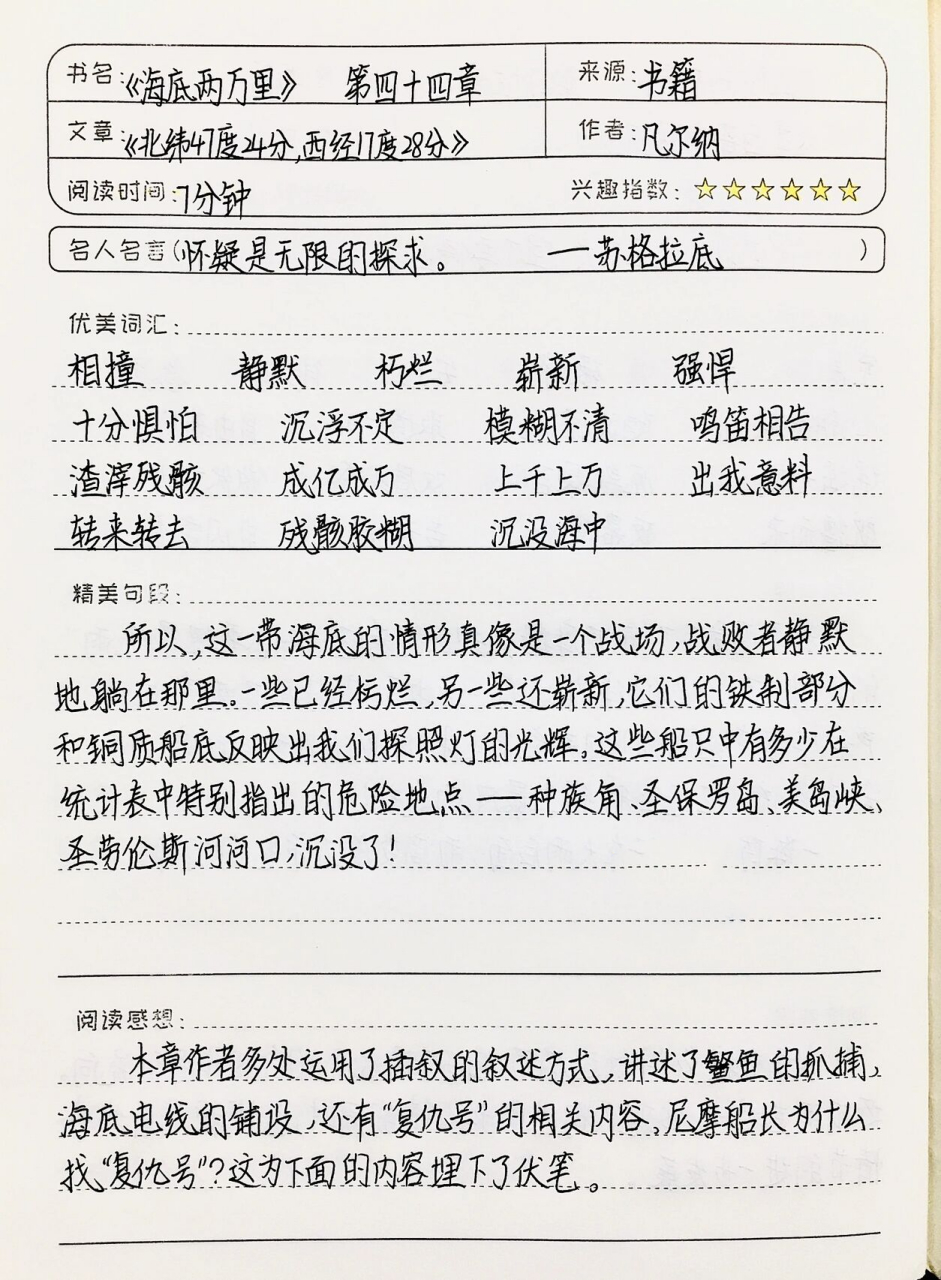 书名:《海底两万里》 第四十四章 来源:书籍
文章:《北纬47度24分,西经17度28分》 作者:凡尔纳
阅读时间:7分钟 兴趣指数:☆☆☆☆☆☆
名人名言(怀疑是无限的探求。 —苏格拉底 )
优美词汇:
相撞 静默 朽烂 崭新 强悍
十分惧怕 沉浮不定 模糊不清 鸣笛相告
渣滓残骸 成亿成万 上千上万 出我意料
转来转去 残骸胶糊 沉没海中
精美句段:
所以,这一带海底的情形真像是一个战场,战败者静默
地躺在那里。一些已经朽烂,另一些还崭新,它们的铁制部分
和铜质船底反映出我们探照灯的光辉。这些船只中有多少在
统计表中特别指出的危险地点——种族角、圣保罗岛、美岛峡、
圣劳伦斯河河口,沉没了!
阅读感想:
本章作者多处运用了插叙的叙述方式,讲述了鳘鱼的抓捕,
海底电线的铺设,还有“复仇号”的相关内容,尼摩船长为什么
找“复仇号”?这为下面的内容埋下了伏笔。